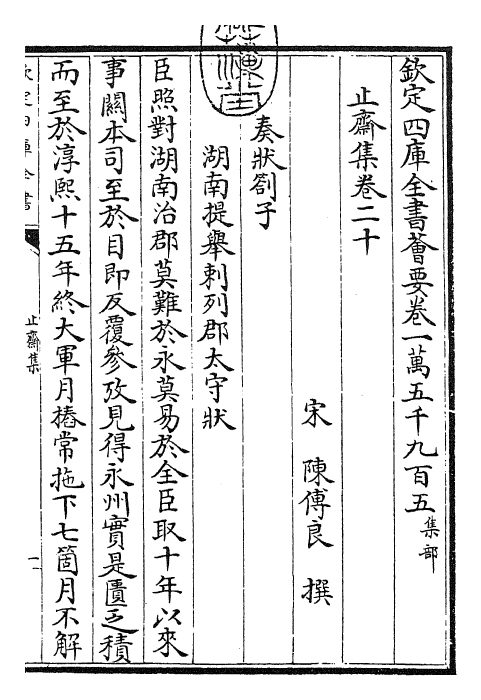 欽定四庫全書薈要卷一萬五千九百五 集部
止齋集卷二十
宋 陳傅良 撰
奏狀劄子
湖南提舉刺列郡太守狀
臣照對湖南治郡莫難於永莫易於全臣取十年以來
事關本司至於目即反覆參攷見得永州實是匱乏積
而至於淳熙十五年終大軍月樁常拖下七箇月不解
欽定四庫全書
止齋集
一